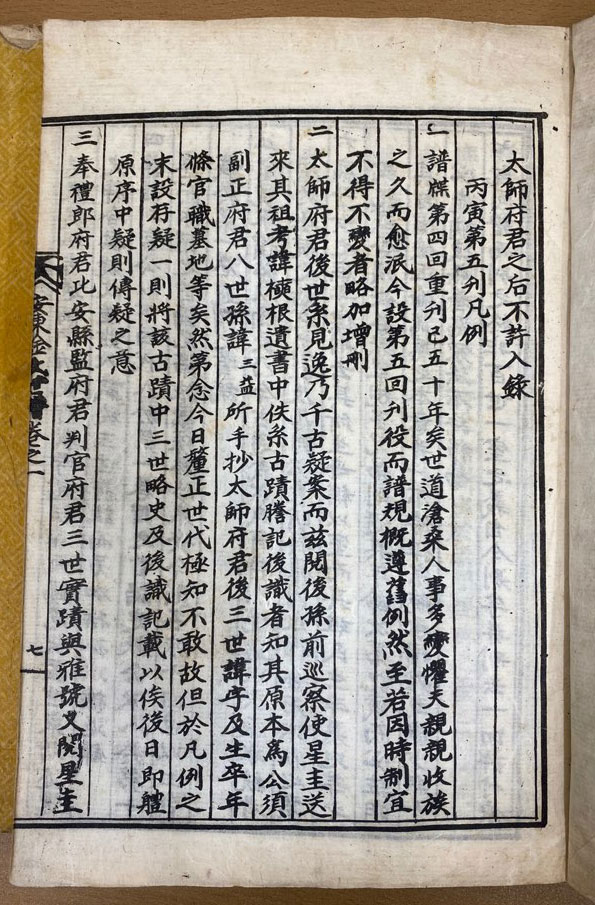 太師府君之后不許入錄
丙寅第五刋凡例
一 譜牒第四回重刋已五十年矣世道滄桑人事多變懼夫親親收族
之久而愈泯今設第五回刋役而譜規槪遵舊例然至若因時制宜
不得不變者略加增刪
二 太師府君後世系見逸乃千古疑案而玆閱後孫前巡察使星圭送
來其祖考諱樲根遺書中佚系古蹟謄記後識者知其原本爲公須
副正府君八世孫諱三益所手抄太師府君後三世諱字及生卒年
條官職墓地等矣然第念今日釐正世代極知不敢故但於凡例之
末設存疑一則將該古蹟中三世略史及後識記載以俟後日卽體
原序中疑則傳疑之意
三 奉禮郞府君比安縣監府君判官府君三世實蹟與雅號又閱星圭
安東金氏
卷之一
七